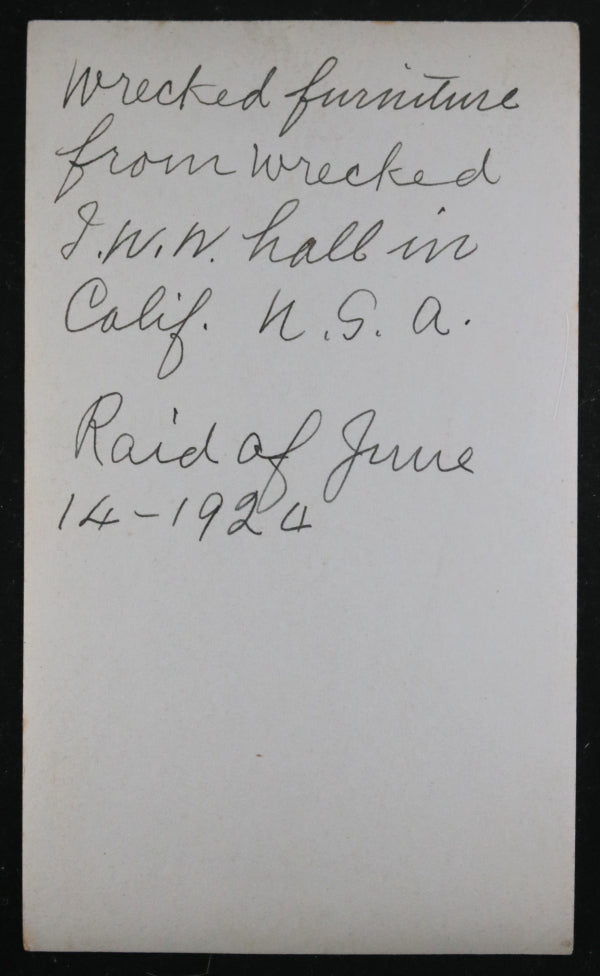 Wrecked furniture
from wrecked
I.W.W. hall in
Calif. U.S.A.
Raid of June
14-1924